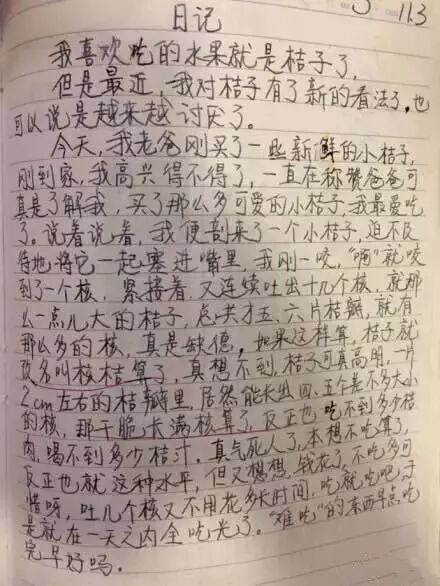 11.3
日记
我喜欢吃的水果就是桔子了,
但是最近,我对桔子有了新的看法了,也
可以说是越来越讨厌了。
今天,我老爸刚买了一些新鲜的小桔子,
刚到家,我高兴得不得了,一直在称赞爸爸可
真是了解我,买了那么多可爱的小桔子,我最爱吃
了。说着说着,我便剖来了一个小桔子,迫不及
待地将它一起塞进嘴里,我刚一咬,“啊”就咬
到了一个核,紧接着,又连续吐出十几个核,就那
么一点儿大的桔子,总共才五、六片桔瓣,就有
那么多的核,真是缺德,如果这样算,桔子就
改名叫核桔算了,真想不到,桔子可真高明,一片
2cm左右的桔瓣里,居然能长出四、五个差不多大小
的核,那干脆长满核算了,反正也吃不到多少桔
肉,喝不到多少桔汁,真气死人了,本想不吃算了,
反正也就这种水平,但又想想,钱花了,不吃多可
惜呀,吐几个核又不用花多长时间,吃就吃吧,于
是就在一天之内全吃光了。“难吃”的东西早点吃
完早好吗。